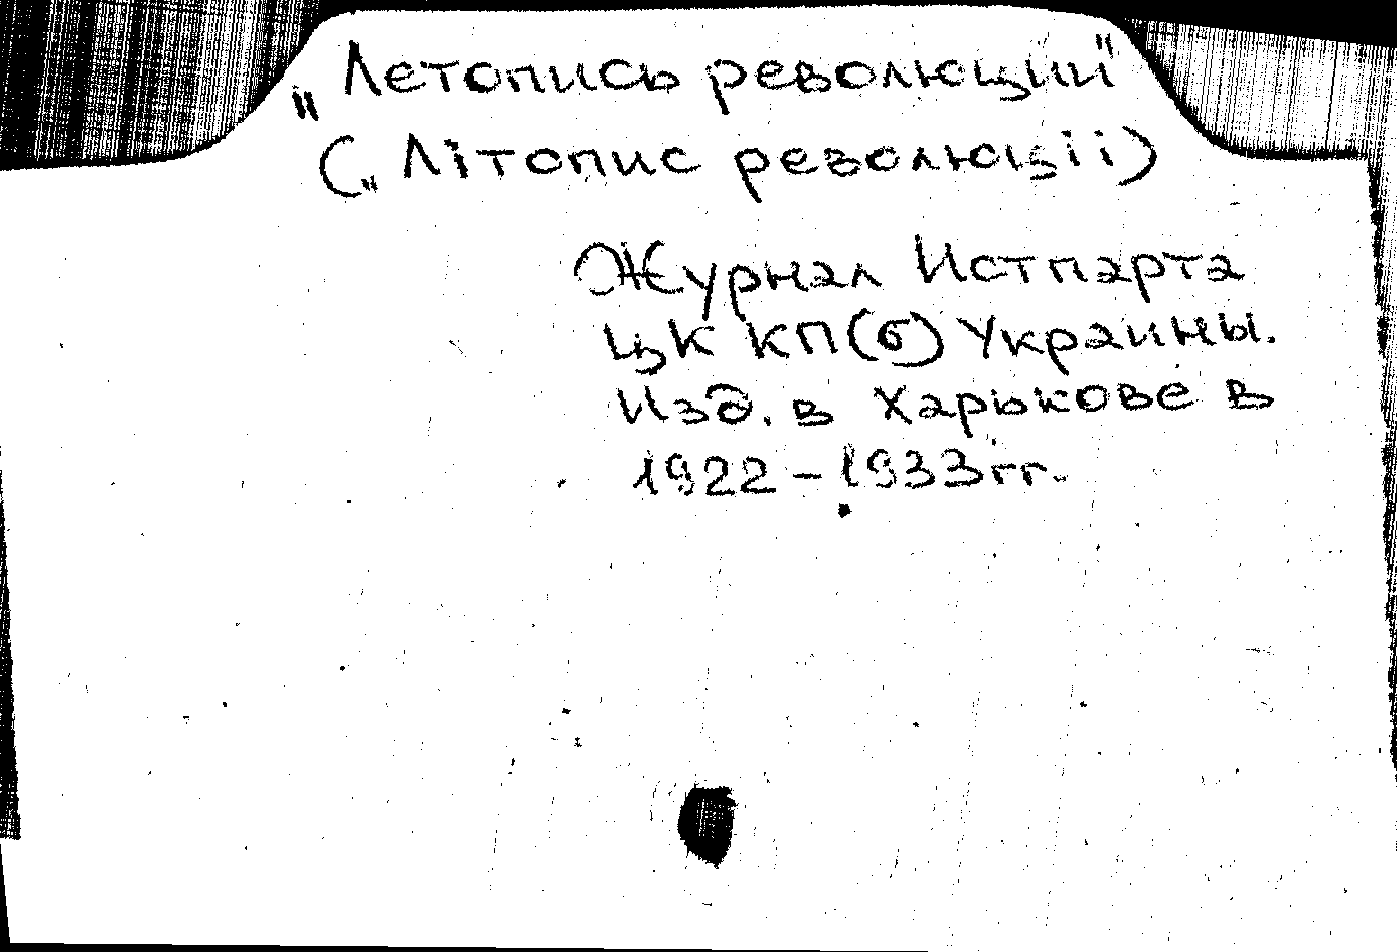 „Летопись революции"
(„Літопис революціі)
Журнал Истпарта
ЦК КП(б) Украины.
Изд. в Харькове в
1922-1933гг.